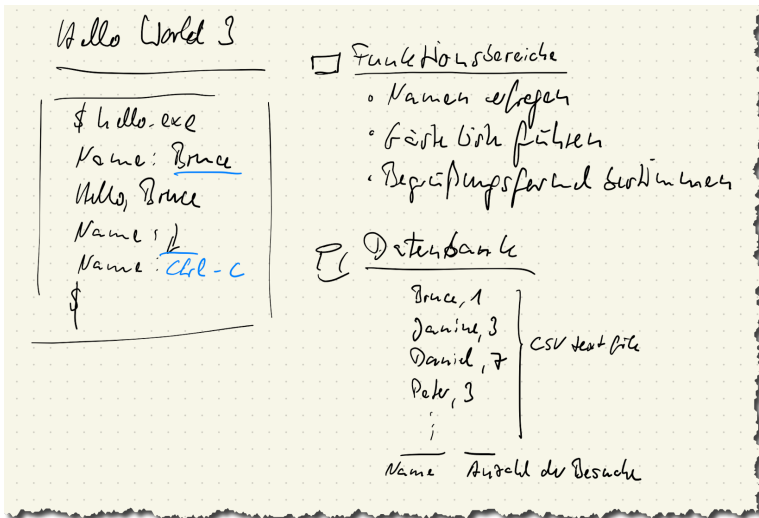 Hello World 3
$ hello.exe
Name: Bruce
Hello, Bruce
Name:
Name: Ctrl-C
$
Funktionsbereiche
• Namen erfragen
• Gästeliste führen
• Begrüßungsformel bestimmen
Datenbank
Bruce, 1
Janine, 3
Daniel, 7
Peter, 3
⋮
CSV text file
Name Anzahl der Besuche